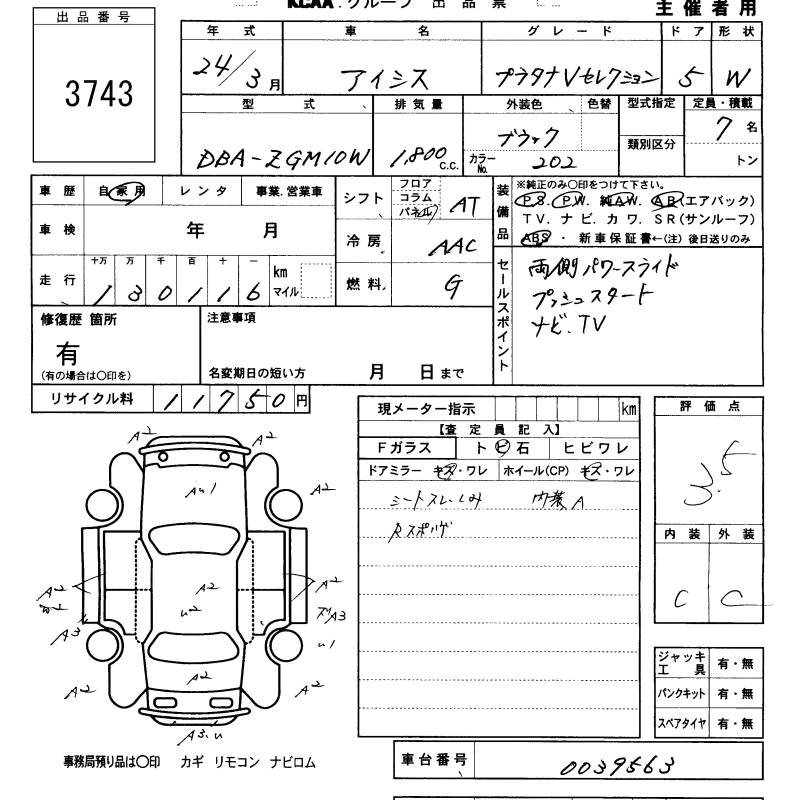 KCAA.グループ 出品票
主催者用
出品番号
3743
年式 車名 グレード ドア 形状
24/3月 アイシス プラタナVセレクション 5 W
型式 排気量 外装色 色替 型式指定 定員・積載
DBA-ZGM10W 1,800 C.C. ブラック 7名
カラーNo. 202 類別区分 トン
車歴 自家用 レンタ 事業.営業車
車検 年 月
走行 十万 万 千 百 十 一
130116 km マイル
シフト フロア コラム パネル AT
冷房 AAC
燃料 G
装備品
※純正のみ〇印をつけて下さい。
P.S. P.W. 純A.W. A.B(エアバック)
T.V. ナビ. カワ. S.R(サンルーフ)
ABS ・ 新車保証書←(注)後日送りのみ
セールスポイント
両側パワースライド
プッシュスタート
ナビ.TV
修復歴 箇所
有
(有の場合は〇印を)
注意事項
名変期日の短い方 月 日まで
リサイクル料 11750円
現メーター指示 km
【査定員記入】
Fガラス トビ石 ヒビワレ
ドアミラー キズ・ワレ ホイール(CP) キズ・ワレ
シートスレ.シミ 内装A
Rスポハゲ
評価点
3.5
内装 外装
C C
A2 A2
Au1
A2 A2
A2 A2 A2
u2
A3 A3
u1
A2 A2 A2
A3.u
ジャッキ工具 有・無
パンクキット 有・無
スペアタイヤ 有・無
事務局預り品は〇印 カギ リモコン ナビロム
車台番号 0039563